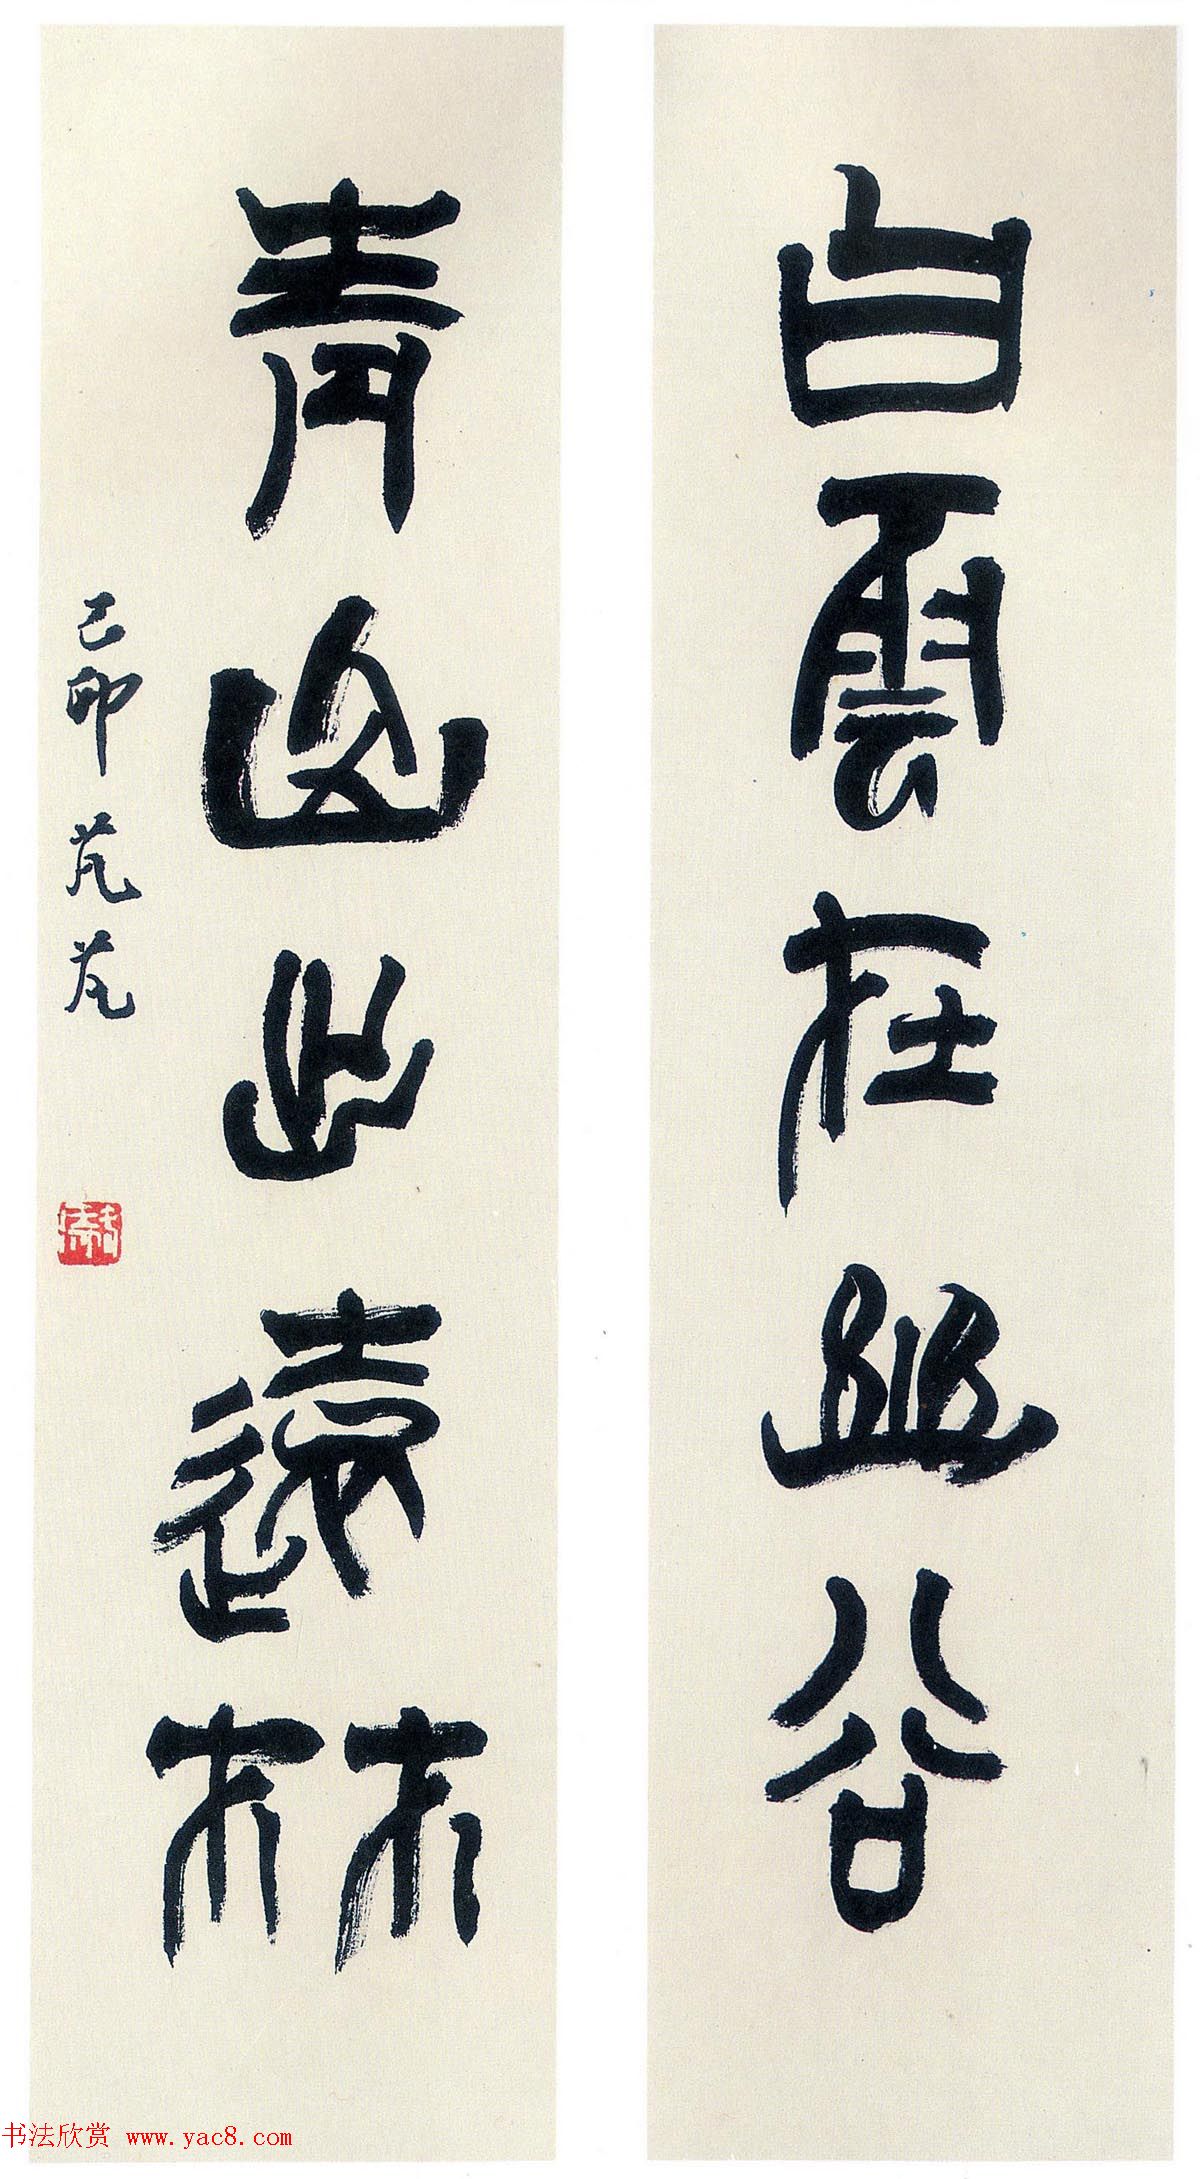 白雲在幽谷
青山出遠林
己卯 芃芃
书法欣赏 www.yac8.com